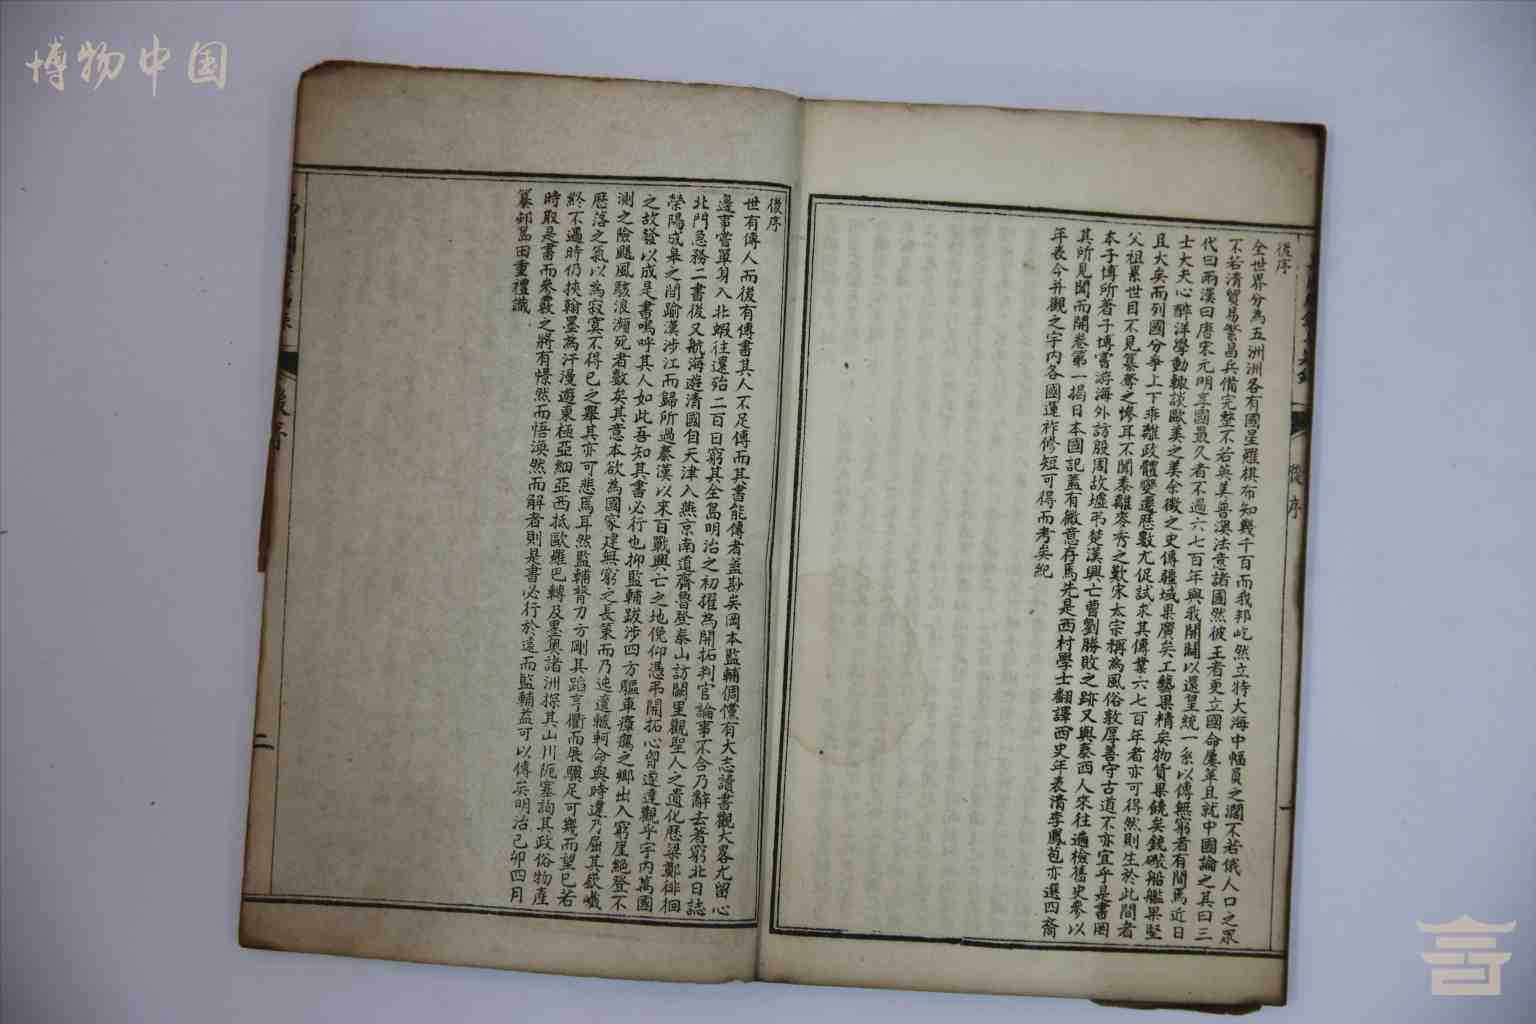 博物中国
後序
全世界分為五洲洲各有國星羅棋布知幾千百而我邦屹然立特大海中幅員之濶不若俄人口之眾
不若清貿易繁昌兵備完整不若英美普澳法意諸國然彼王者更立國命屢革且就中國論之其曰三
代曰兩漢曰唐宋元明享國最久者不過六七百年與我開闢以還皇統一系以傳無窮者有間焉近日
士大夫心醉洋學動輙談歐美之美余徵之史傳疆域果廣矣工藝果精矣物貨果饒矣銃礮船艦果堅
且大矣而列國分爭上下乖離政體變遷歷數亢促試求其傳業六七百年者亦可得然則生於此間者
父祖累世目不見篡奪之慘耳不聞黍離麥秀之歎宋太宗稱為風俗敦厚善守古道不亦宜乎是書岡
本子博所著子博嘗游海外訪殷周故墟弔楚漢興亡曹劉勝敗之跡又與泰西人來往遍檢舊史參以
其所見聞而開卷第一揭日本國記蓋有微意存焉先是西村學士翻譯西史年表清李鳳苞亦選四裔
年表今并觀之宇内各國運祚修短可得而考矣紀
後序
一
後序
世有傳人而後有傳書其人不足傳而其書能傳者蓋尠矣岡本監輔倜儻有大志讀書觀大畧尤留心
邊事嘗單身入北蝦往還殆二百日窮其全島明治之初擢為開拓判官論事不合乃辭去著窮北日誌
北門急務二書後又航海遊清國自天津入燕京南道齊魯登泰山訪闕里觀聖人之遺化歷梁鄭徘徊
滎陽成皋之間踰漢涉江而歸所過秦漢以來百戰興亡之地俛仰憑弔開拓心胷遂達觀乎宇内萬國
之故發以成是書嗚呼其人如此吾知其書必行也抑監輔跋涉四方驅車瘴癘之鄉出入窮崖絕登不
測之險颶風駭浪瀕死者數矣其意本欲為國家建無窮之長策而乃迍邅轗軻命與時違乃屈其嶔巇
歷落之氣以為寂寞不得已之舉其亦可悲焉耳然監輔膂力方剛其蹈亨衢而展驥足可幾而望已若
終不遇時仍挾翰墨為汗漫遊東極亞細亞西抵歐羅巴轉及墨奧諸洲探其山川阨塞詢其政俗物產
時取是書而參覈之將有憬然而悟渙然而解者則是書必行於遠而監輔益可以傳矣明治己卯四月
篡邨島田重禮識
後序
二